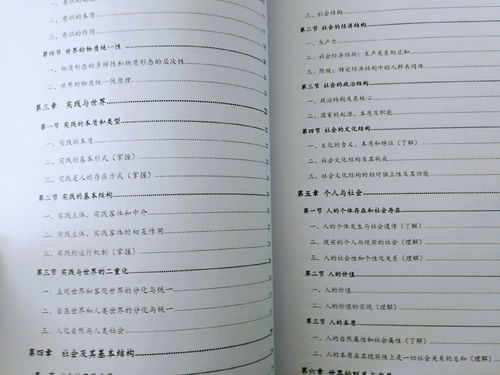 二、意识的本质
三、意识的作用
第四节 世界的物质统一性
一、物质形态的多样性和物质形态的层次性
二、世界的物质统一性原理
第三章 实践与世界
第一节 实践的本质和类型
一、实践的本质
二、实践的基本形式（掌握）
三、实践是人的存在方式（掌握）
第二节 实践的基本结构
一、实践主体、实践客体和中介
二、实践主体、实践客体的相互作用
三、实践的运行机制（掌握）
第三节 实践与世界的二重化
一、主观世界和客观世界的分化与统一
二、自在世界和人类世界的分化与统一
三、人化自然与人类社会
第四章 社会及其基本结构
三、社会结构
第二节 社会的经济结构
一、生产力
二、社会经济结构：生产关系的总和
三、阶级：特定经济结构中的人群共同体
第三节 社会的政治结构
一、政治结构及其核心
二、国家的起源、本质及职能
第四节 社会的文化结构
一、文化的含义、本质和特征（了解）
二、社会文化结构及其构成
三、社会文化结构的相对独立性及其功能
第五章 个人与社会
第一节 人的个体存在和社会存在
一、人的个体发生与社会遗传（了解）
二、现实的个人与现实的社会（理解）
三、人的社会性和个性化关系（理解）
第二节 人的价值
一、人的价值
二、人的价值的实现（理解）
第三节 人的本质
一、人的自然属性和社会属性（了解）
二、人的本质在其现实性上是一切社会关系的总和（理解）
第六章 世界的联系与发展